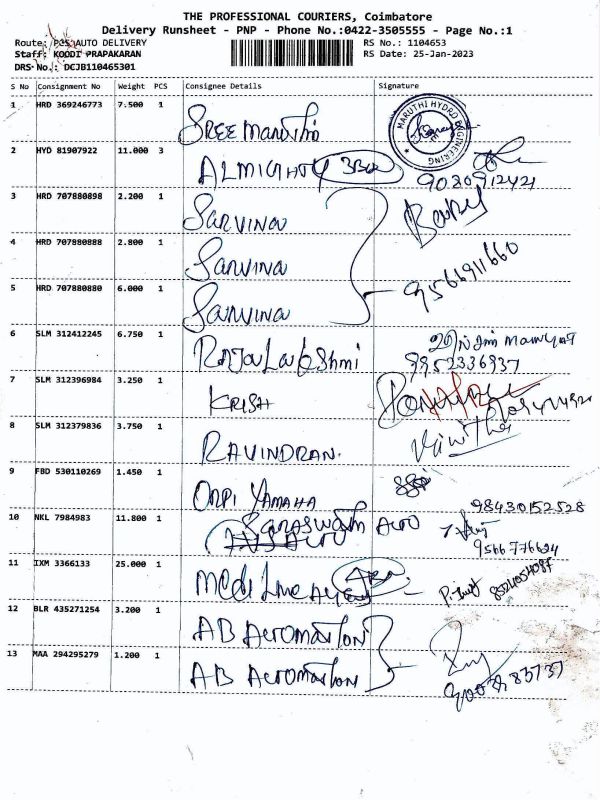 THE PROFESSIONAL COURIERS, Coimbatore
Delivery Runsheet - PNP - Phone No.:0422-3505555 - Page No.:1
Route: PCS AUTO DELIVERY
RS No.: 1104653
Staff: KOODI PRAPAKARAN
RS Date: 25-Jan-2023
DRS No.: DCJB110465301
S No Consignment No Weight PCS Consignee Details Signature
1 HRD 369246773 7.500 1 SREE Maruthi
MARUTHI HYDRO ENGINEERING
2 HYD 81907922 11.000 3 ALMIGHTY 3Box
9030912421
3 HRD 707880898 2.200 1 SARVINA
4 HRD 707880888 2.800 1 Sarvina
9566911660
5 HRD 707880880 6.000 1 Sarvina
6 SLM 312412245 6.750 1 RAJaLakshmi
9952336937
7 SLM 312396984 3.250 1 KRISH
8 SLM 312379836 3.750 1 RAVINDRAN.
Vanitha
9 FBD 530110269 1.450 1 ORPI YAMAHA
98430152528
10 NKL 7984983 11.800 1 SARASWATHI AUTO
9566776624
11 IXM 3366133 25.000 1
12 BLR 435271254 3.200 1 AB AUTOMATION
13 MAA 294295279 1.200 1 AB AUTOMATION